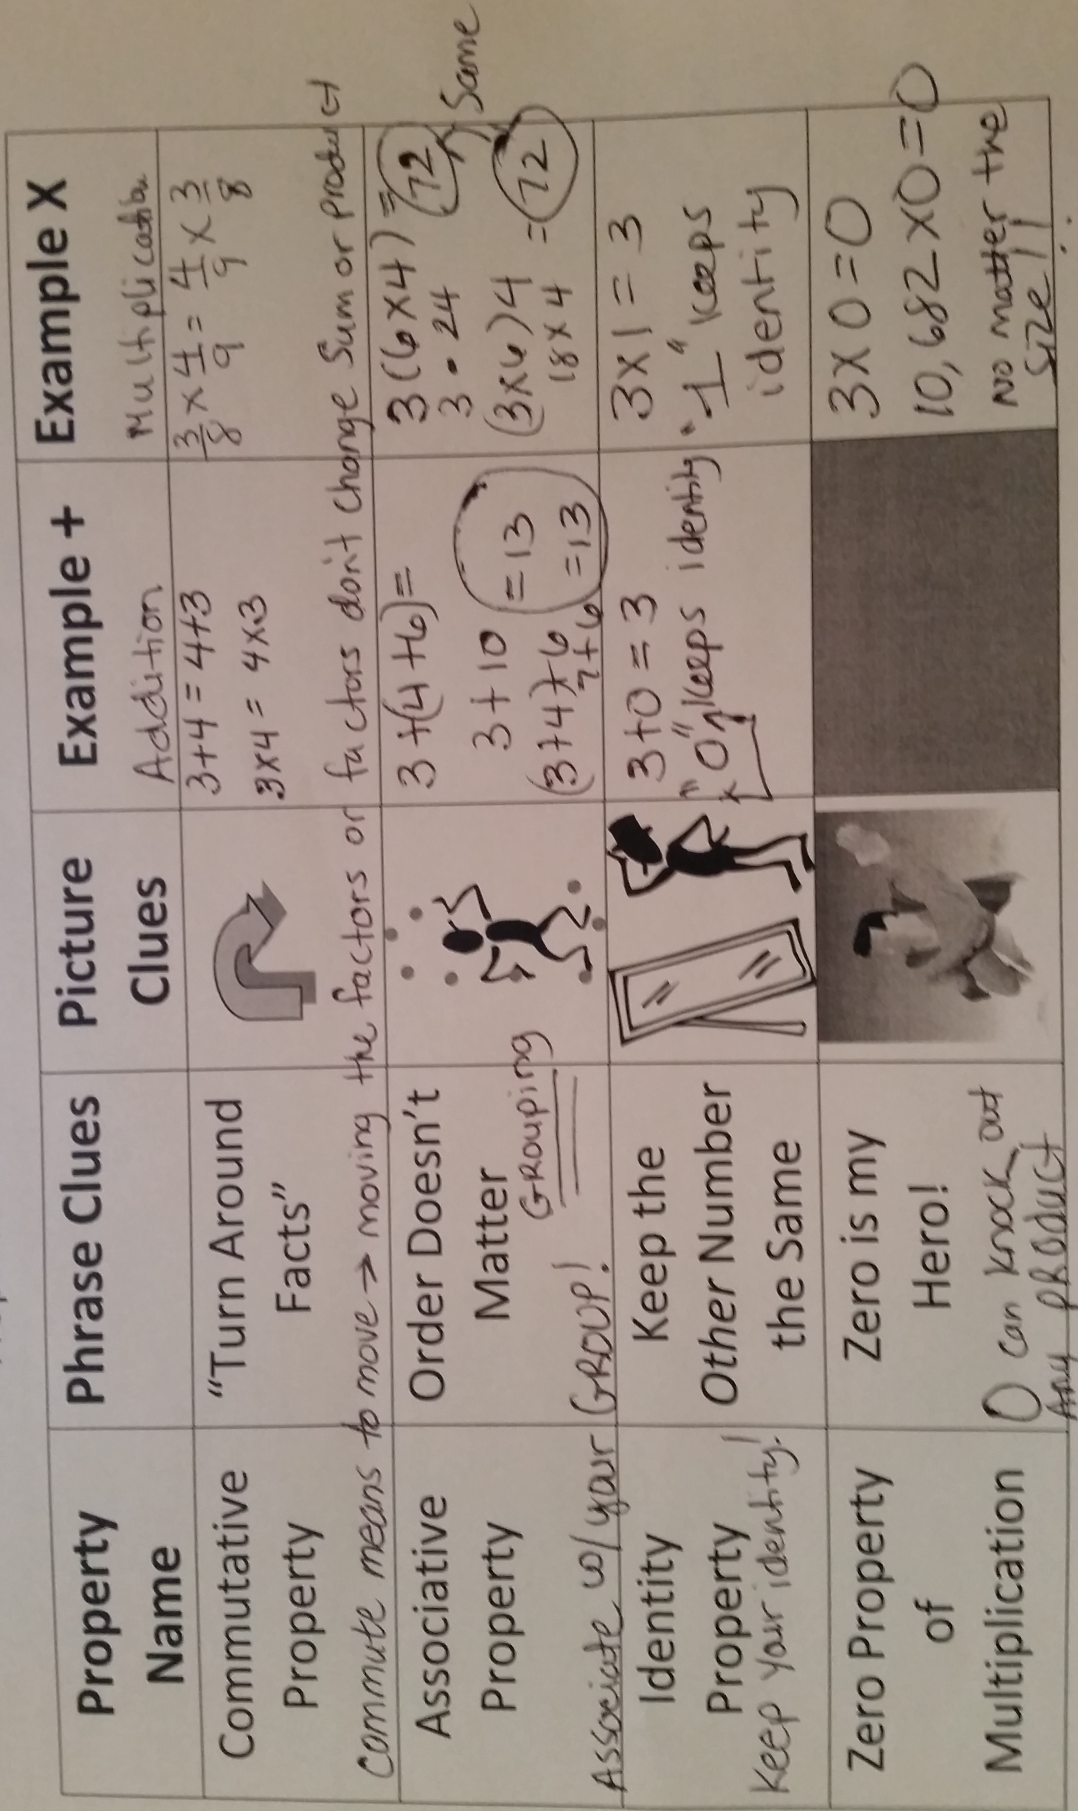 Property Name
Phrase Clues
Picture Clues
Example +
Addition
Example X
Multiplication
Commutative
Property
"Turn Around
Facts"
3+4 = 4+3
3x4 = 4x3
3/8 x 4/9 = 4/9 x 3/8
Commute means to move → moving the factors or factors don't change sum or product
Associative
Property
Order Doesn't
Matter
GROUPING
Associate w/ your GROUP!
3+(4+6)=
3+10 =13
(3+4)+6
7+6 =13
3(6x4) = 72
3 • 24
Same
(3x6)4
18x4 = 72
Identity
Property
Keep your identity!
Keep the
Other Number
the Same
3+0=3
"0" keeps identity
3x1=3
"1" keeps
identity
Zero Property
of
Multiplication
Zero is my
Hero!
0 can knock out
Any PRODUCT
3x0=0
10,682x0=0
No matter the
size!!